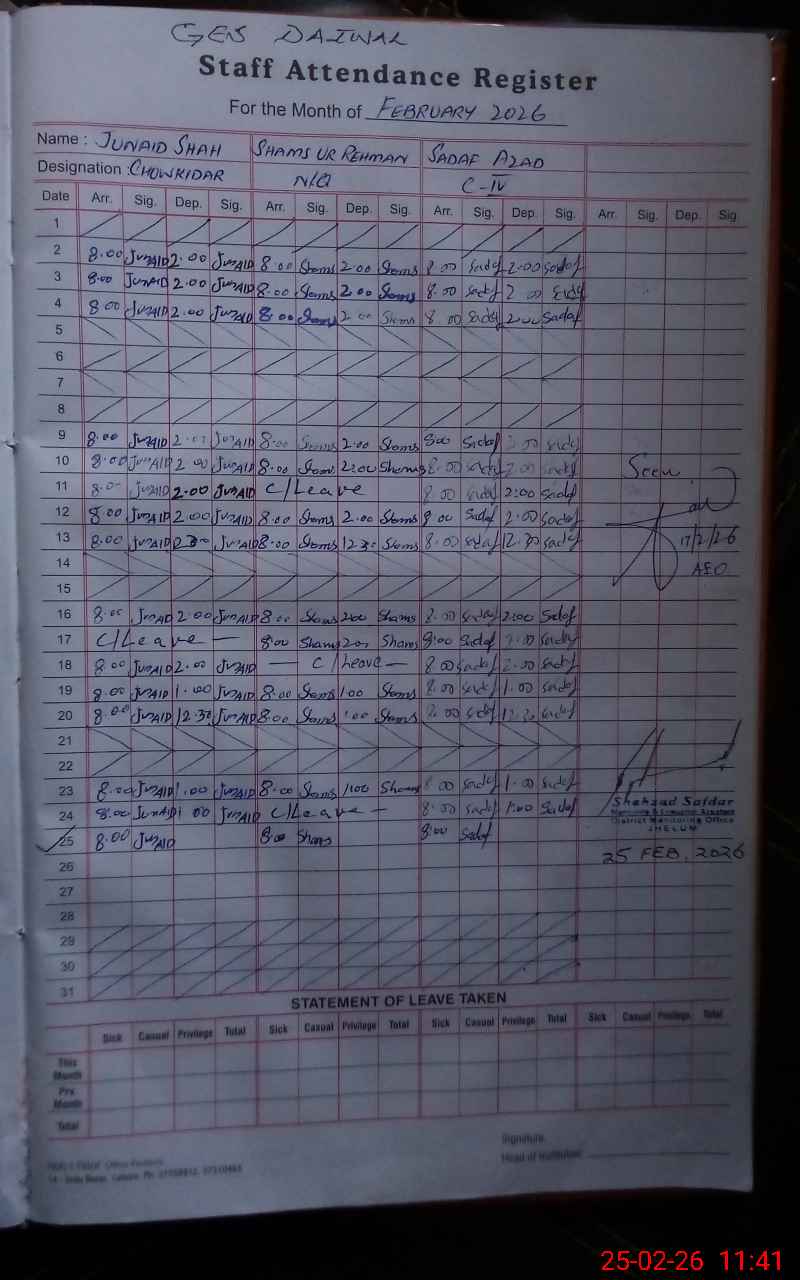 GES DAIWAL
Staff Attendance Register
For the Month of FEBRUARY 2026
Name : JUNAID SHAH SHAMS UR REHMAN SADAF AZAD
Designation : CHOWKIDAR N/Q C-IV
Date Arr. Sig. Dep. Sig. Arr. Sig. Dep. Sig. Arr. Sig. Dep. Sig. Arr. Sig. Dep. Sig
1
2 8.00 JunAID 2.00 JunAID 8.00 Shams 2.00 Shams 8.00 Sadaf 2.00 Sadaf
3 8.00 JunAID 2.00 JunAID 8.00 Shams 2.00 Shams 8.00 Sadaf 2.00 Sadaf
4 8.00 JunAID 2.00 JunAID 8.00 Shams 2.00 Shams 8.00 Sadaf 2.00 Sadaf
5
6
7
8
9 8.00 JunAID 2.00 JunAID 8.00 Shams 2.00 Shams 8.00 Sadaf 2.00 Sadaf
10 8.00 JunAID 2.00 JunAID 8.00 Shams 2.00 Shams 8.00 Sadaf 2.00 Sadaf Seen
11 8.00 JunAID 2.00 JunAID C/Leave 8.00 Sadaf 2:00 Sadaf
12 8.00 JunAID 2.00 JunAID 8.00 Shams 2.00 Shams 8.00 Sadaf 2.00 Sadaf
13 8.00 JunAID 8.00 Shams 12.30 Shams 8.00 Sadaf 12.30 Sadaf 17/2/26
14 AEO
15
16 8.00 JunAID 2.00 JunAID 8.00 Shams 2.00 Shams 8.00 Sadaf 2:00 Sadaf
17 C/Leave — 8.00 Shams 2.00 Shams 8:00 Sadaf 2.00 Sadaf
18 8.00 JunAID 2.00 JunAID — C/Leave — 8.00 Sadaf 2.00 Sadaf
19 8.00 JunAID 1.00 JunAID 8.00 Shams 1.00 Shams 8.00 Sadaf 1.00 Sadaf
20 8.00 JunAID 12.30 JunAID 8.00 Shams Shams 8.00 Sadaf Sadaf
21
22
23 8.00 JunAID 1.00 JunAID 8.00 Shams 1.00 Shams 8.00 Sadaf 1.00 Sadaf
24 8.00 JunAID 1.00 JunAID C/Leave — 8.00 Sadaf 1.00 Sadaf
Shahzad Safdar
Monitoring & Evaluation Assistant
District Monitoring Office
JHELUM
25 8.00 JunAID 8.00 Shams 8:00 Sadaf
25 FEB, 2026
26
27
28
29
30
31
STATEMENT OF LEAVE TAKEN
Sick Casual Privilege Total Sick Casual Privilege Total Sick Casual Privilege Total Sick Casual Privilege Total
This Month
Prv Month
Total
Signature
Head of Institution
25-02-26 11:41